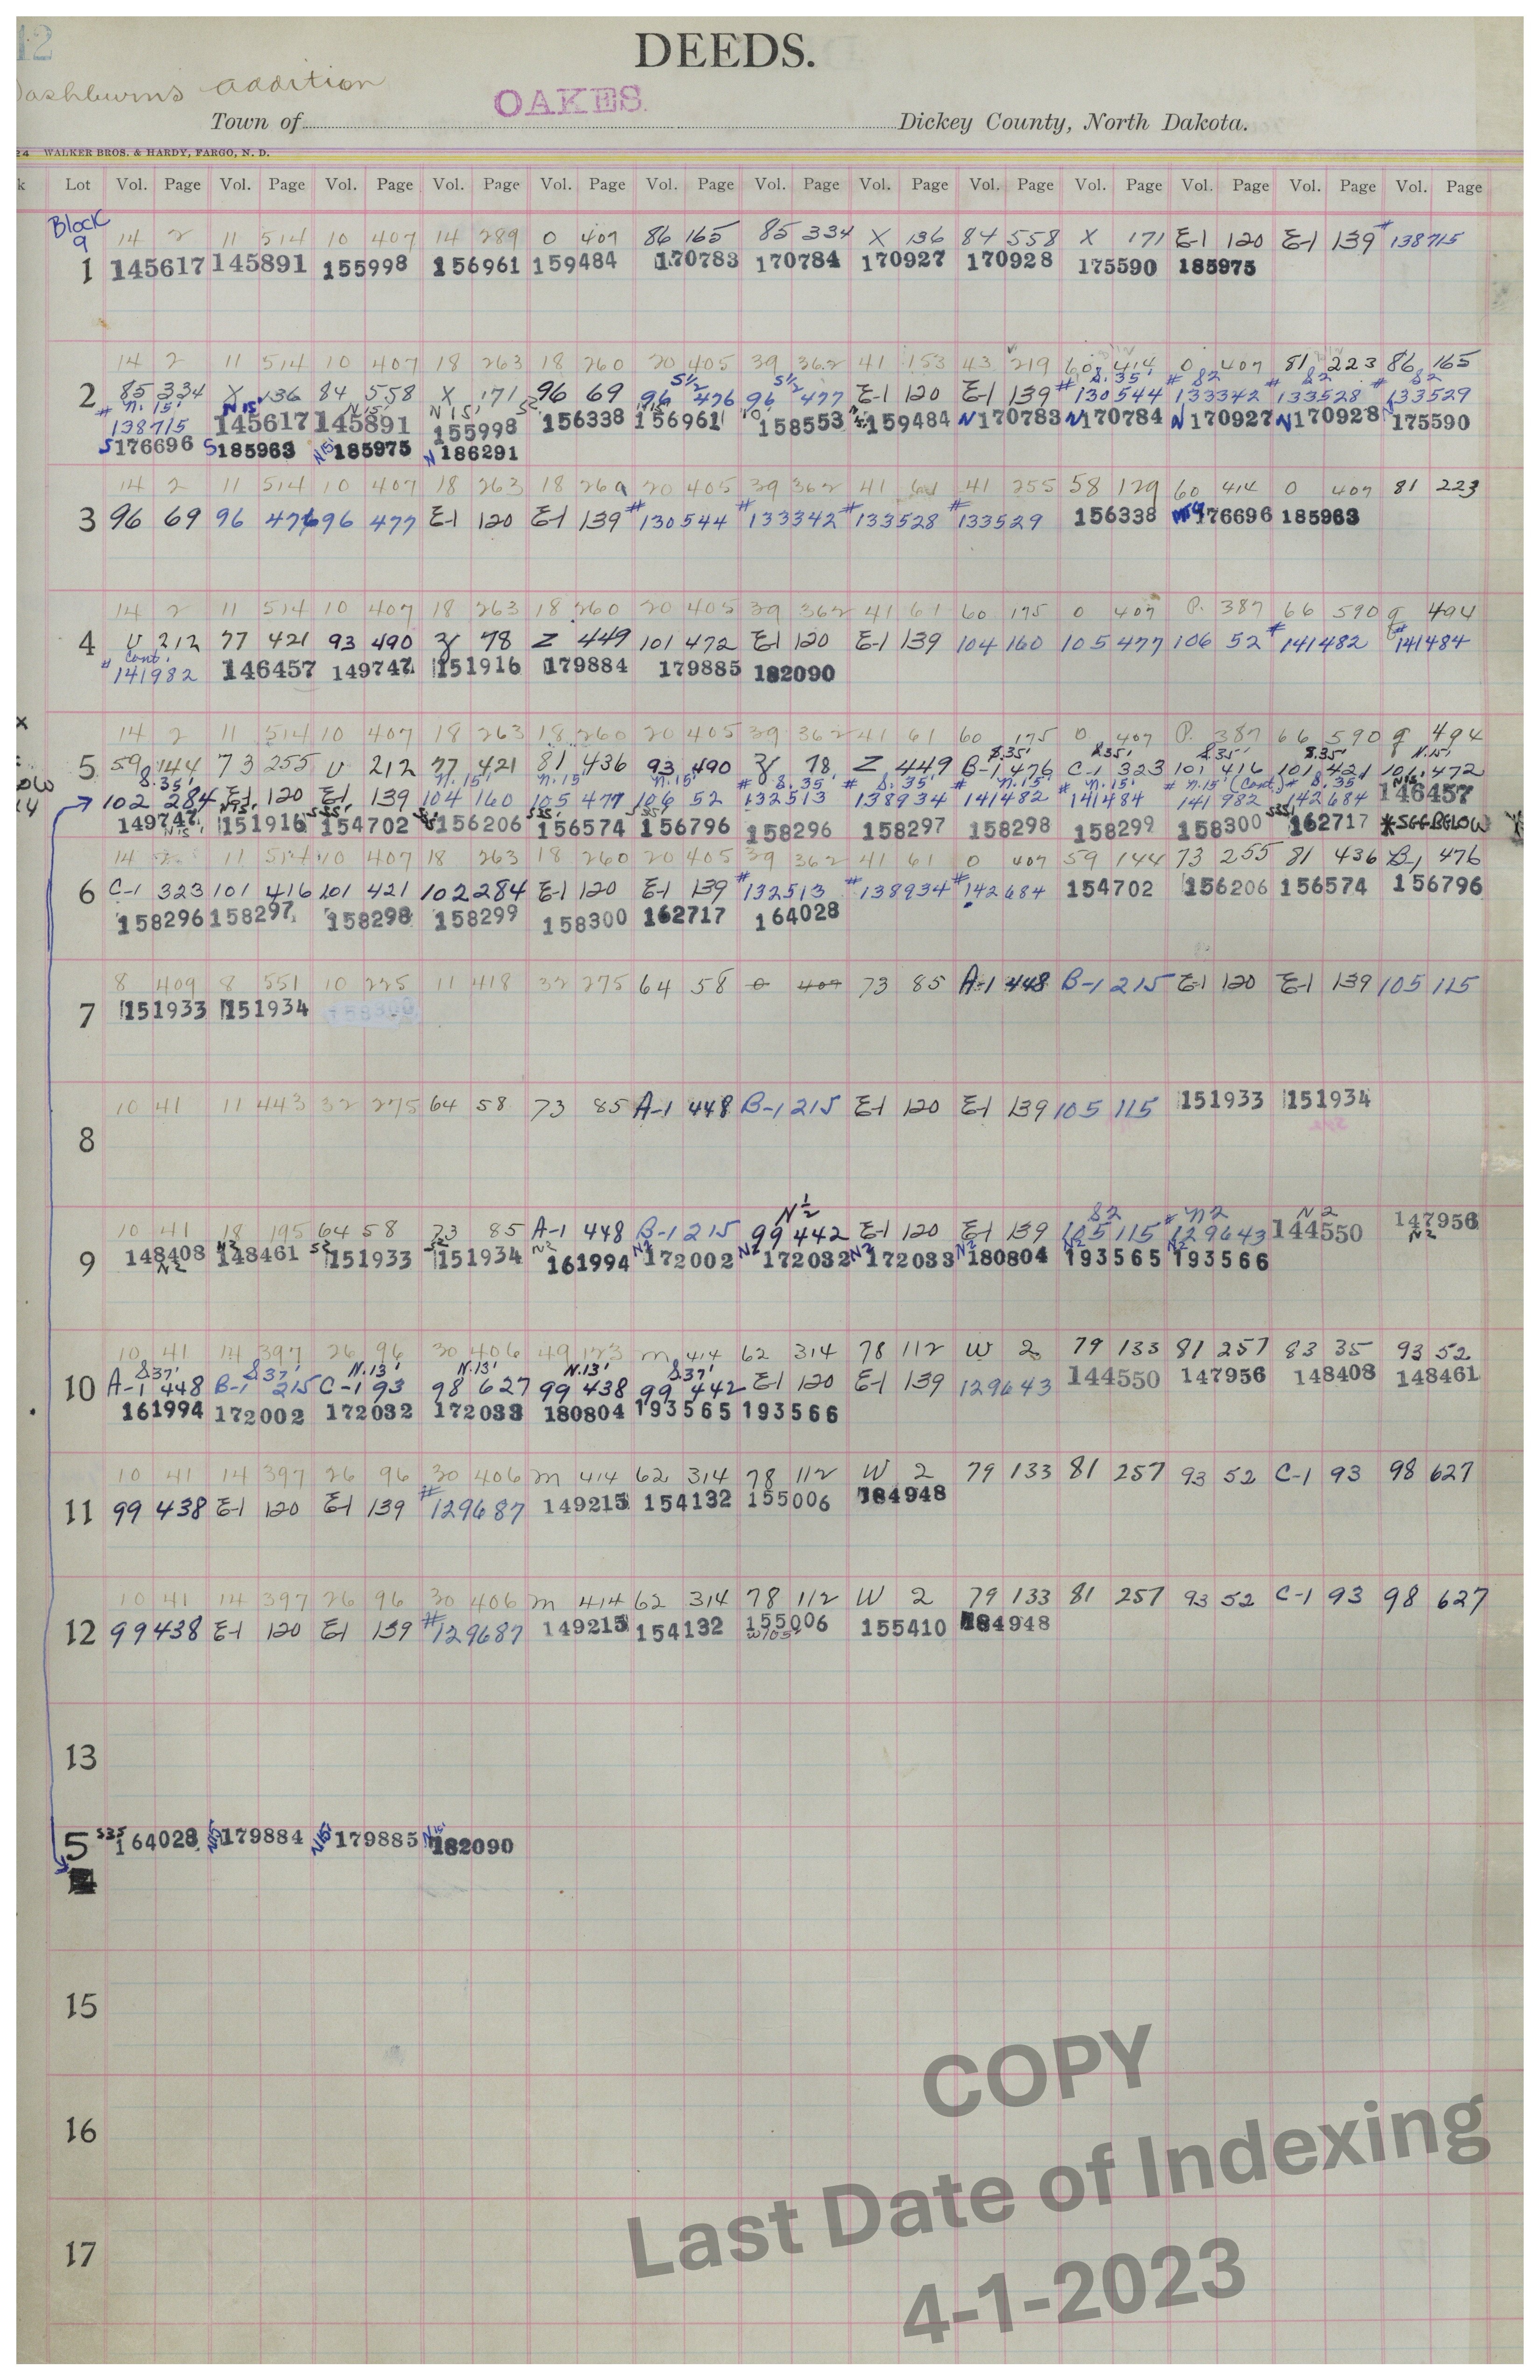 12
DEEDS.
Washburns addition
OAKES.
Town of Dickey County, North Dakota.
24 WALKER BROS. & HARDY, FARGO, N. D.
k Lot Vol. Page Vol. Page Vol. Page Vol. Page Vol. Page Vol. Page Vol. Page Vol. Page Vol. Page Vol. Page Vol. Page Vol. Page Vol. Page
Block
9
14 2 11 514 10 407 14 289 0 407 86 165 85 334 X 136 84 558 X 171 E-1 120 E-1 139 #138715
1 145617 145891 155998 156961 159484 170783 170784 170927 170928 175590 185975
14 2 11 514 10 407 18 263 18 260 20 405 39 362 41 153 43 219 60 414 0 407 81 223 86 165
S½ S½ S. 35' S2 S2 S2
2 85 334 X 136 84 558 X 171 96 69 96 476 96 477 E-1 120 E-1 139 #130544 #133342 #133528 #133529
# n. 15' N 15' N 15' N 15'
138715 145617 145891 155998 156338 156961 158553 159484 N170783 N170784 N170927 N170928 N175590
S176696 S185963 N15' 185975 N 186291
14 2 11 514 10 407 18 263 18 260 20 405 39 362 41 61 41 255 58 129 60 414 0 407 81 223
3 96 69 96 476 96 477 E-1 120 E-1 139 #130544 #133342 #133528 #133529 156338 176696 185963
14 2 11 514 10 407 18 263 18 260 20 405 39 362 41 61 60 175 0 407 P. 387 66 590 9 494
4 U 212 77 421 93 490 Y 78 Z 449 101 472 E-1 120 E-1 139 104 160 105 477 106 52 #141482 #141484
# Cont.
141982 146457 149747 151916 179884 179885 182090
x
14 2 11 514 10 407 18 263 18 260 20 405 39 362 41 61 60 175 0 407 P. 387 66 590 9 494
S.35' S.35' S.35' S.35' N.15'
5 59 144 73 255 U 212 77 421 81 436 93 490 Y 78 Z 449 B-1 476 C-1 323 101 416 101 421 101 472
S. 35' n. 15' n. 15' n. 15' # S. 35' # S. 35' n. 15' # n. 15' # n. 15' (Cont.) # S. 35' N15'
102 284 E-1 120 E-1 139 104 160 105 477 106 52 132513 138934 141482 141484 141982 142684 146457
149747 151916 154702 156206 156574 156796 158296 158297 158298 158299 158300 162717 *SEE BELOW
N15'
14 11 514 10 407 18 263 18 260 20 405 39 362 41 61 0 407 59 144 73 255 81 436 B-1 476
6 C-1 323 101 416 101 421 102 284 E-1 120 E-1 139 #132513 #138934 #142684 154702 156206 156574 156796
158296 158297 158298 158299 158300 162717 164028
8 409 8 551 10 225 11 418 32 275 64 58 0 407 73 85 A-1 448 B-1 215 E-1 120 E-1 139 105 115
7 151933 151934
10 41 11 443 32 275 64 58 73 85 A-1 448 B-1 215 E-1 120 E-1 139 105 115 151933 151934
8
N½ S2 # N2 N2
10 41 18 195 64 58 73 85 A-1 448 B-1 215 99 442 E-1 120 E-1 139 105 115 129643 144550 147956
N2
9 148408 N2 148461 S2 151933 S2 151934 N2 161994 N2 172002 N2 172032 N2 172033 N2 180804 N2 193565 N2 193566
N2
10 41 14 397 26 96 30 406 49 123 m 414 62 314 78 112 W 2 79 133 81 257 83 35 93 52
S37' S37' N.13' N.13' N.13' S37'
10 A-1 448 B-1 215 C-1 93 98 627 99 438 99 442 E-1 120 E-1 139 129643 144550 147956 148408 148461
161994 172002 172032 172033 180804 193565 193566
10 41 14 397 26 96 30 406 m 414 62 314 78 112 W 2 79 133 81 257 93 52 C-1 93 98 627
11 99 438 E-1 120 E-1 139 #129687 149215 154132 155006 184948
10 41 14 397 26 96 30 406 m 414 62 314 78 112 W 2 79 133 81 257 93 52 C-1 93 98 627
12 99 438 E-1 120 E-1 139 #129687 149215 154132 155006 155410 184948
13
5 S35 164028 N15' 179884 N15' 179885 N15' 182090
15
16
17
COPY
Last Date of Indexing
4-1-2023